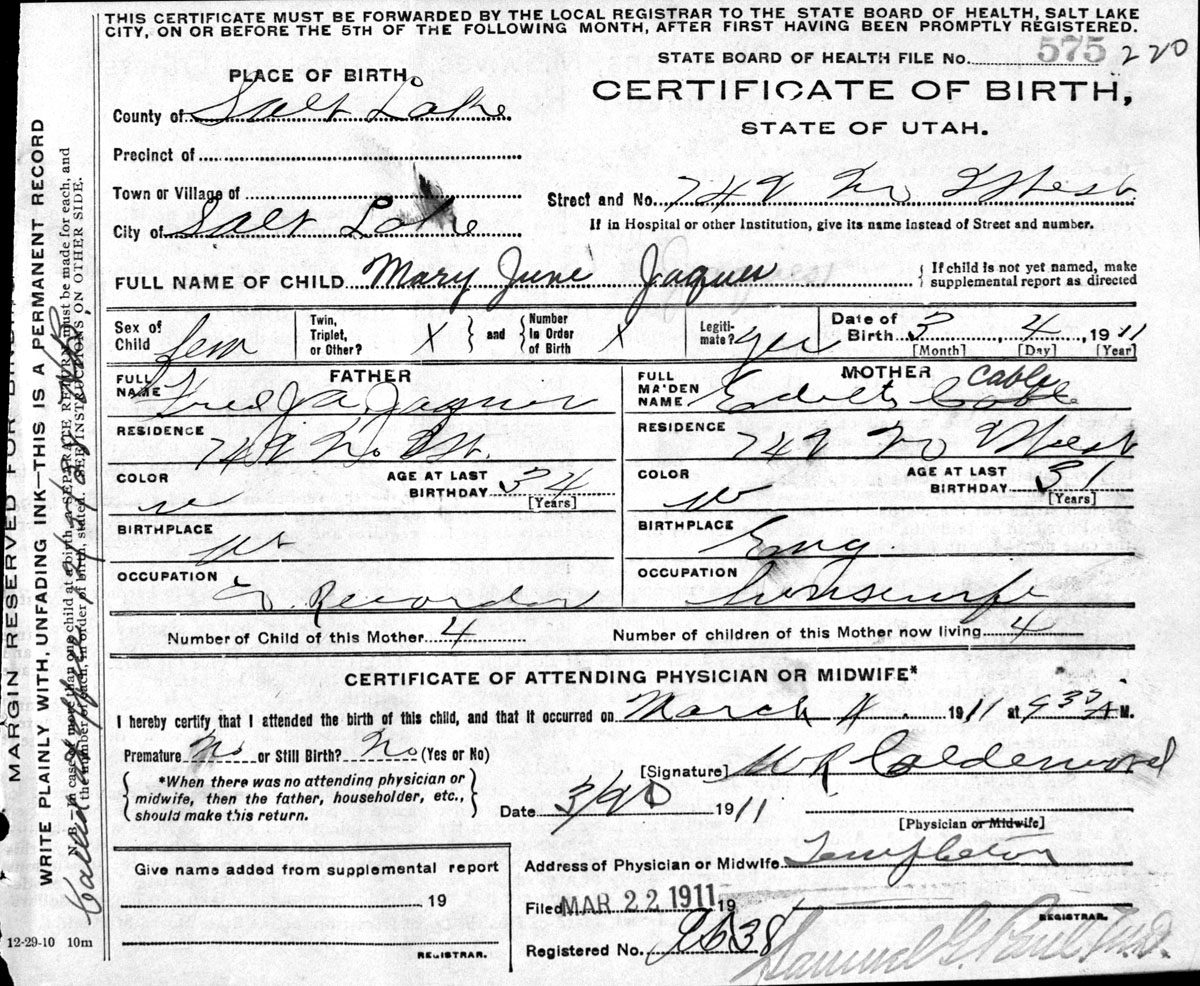 THIS CERTIFICATE MUST BE FORWARDED BY THE LOCAL REGISTRAR TO THE STATE BOARD OF HEALTH, SALT LAKE
CITY, ON OR BEFORE THE 5TH OF THE FOLLOWING MONTH, AFTER FIRST HAVING BEEN PROMPTLY REGISTERED.
STATE BOARD OF HEALTH FILE No. 575 220
PLACE OF BIRTH.
CERTIFICATE OF BIRTH,
STATE OF UTAH.
County of Salt Lake
Precinct of
Town or Village of
Street and No. 742 No West
City of Salt Lake
If in Hospital or other Institution, give its name instead of Street and number.
FULL NAME OF CHILD Mary June Jaques
{ If child is not yet named, make
supplemental report as directed
Sex of Child fem
Twin, Triplet, or Other? X } and { Number in Order of Birth X
Legiti-mate? yes
Date of Birth 3, 4, 1911
[Month] [Day] [Year]
FATHER
FULL NAME Fred A Jaques
RESIDENCE
COLOR w
AGE AT LAST BIRTHDAY 34
[Years]
BIRTHPLACE
OCCUPATION Recorder
MOTHER
FULL MAIDEN NAME Edith Cable cable
RESIDENCE 742 No West
COLOR w
AGE AT LAST BIRTHDAY 31
[Years]
BIRTHPLACE Eng.
OCCUPATION housewife
Number of Child of this Mother 4
Number of children of this Mother now living 4
CERTIFICATE OF ATTENDING PHYSICIAN OR MIDWIFE*
I hereby certify that I attended the birth of this child, and that it occurred on March 4, 1911 at 9 30 A M.
Premature No or Still Birth? No (Yes or No)
{ *When there was no attending physician or
midwife, then the father, householder, etc.,
should make this return. }
[Signature] W R Calderwood
Date 1911
[Physician or Midwife]
Address of Physician or Midwife Templeton
Give name added from supplemental report
19
REGISTRAR.
Filed MAR 22 1911 19
REGISTRAR.
Registered No. 9638
Samuel G. Paul M.D.
12-29-10 10m
MARGIN RESERVED FOR BINDING
WRITE PLAINLY WITH UNFADING INK—THIS IS A PERMANENT RECORD
N. B.—In case of more than one child at a birth, a SEPARATE RETURN must be made for each, and
the number of each, in order of birth, stated. SEE INSTRUCTIONS ON OTHER SIDE.